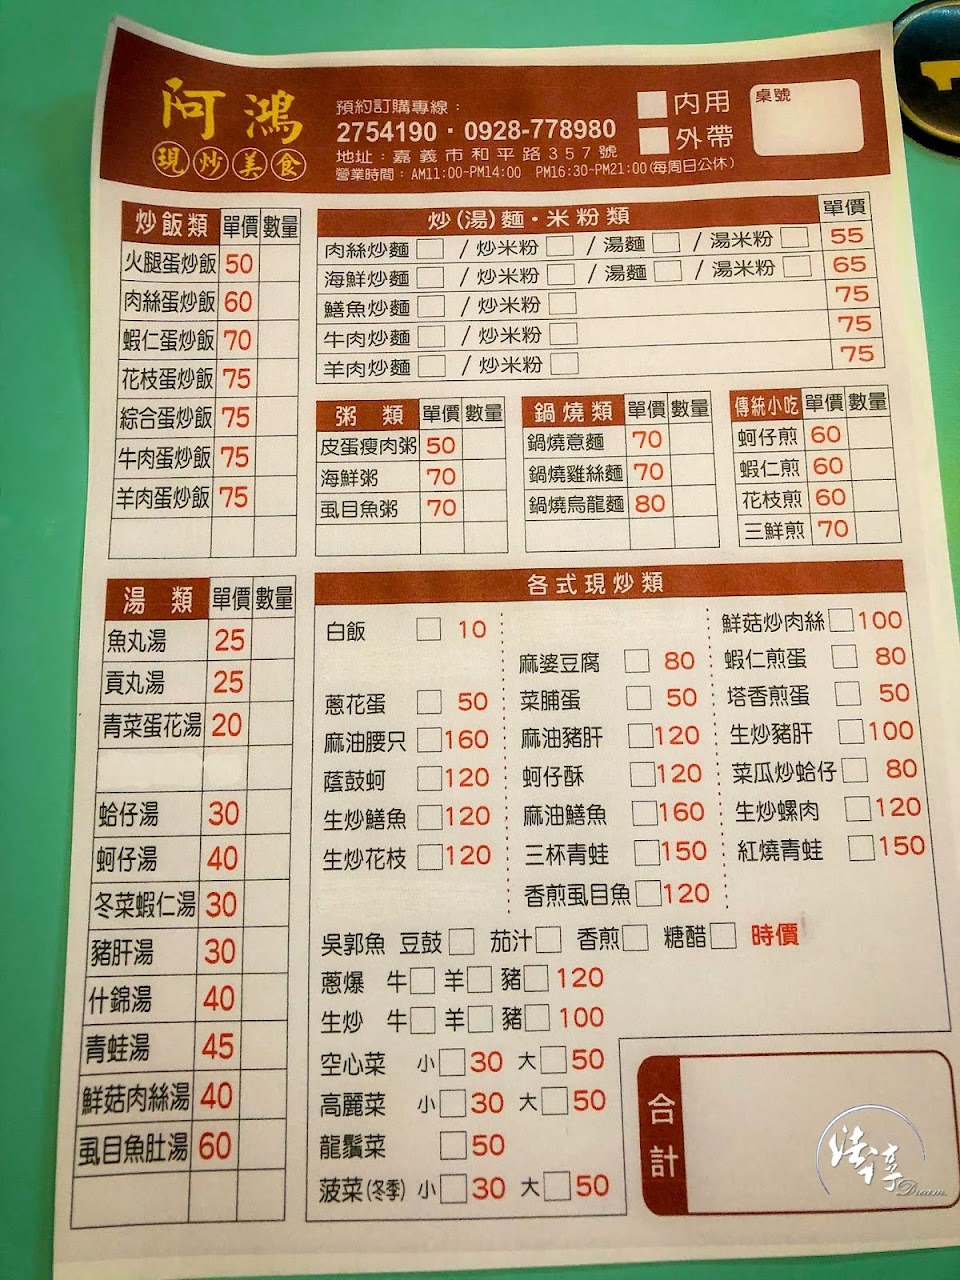 阿鴻
現炒美食
預約訂購專線：
2754190．0928-778980
地址：嘉義市和平路357號
營業時間：AM11:00-PM14:00 PM16:30-PM21:00(每周日公休)
內用
外帶
桌號
炒飯類 單價 數量
火腿蛋炒飯 50
肉絲蛋炒飯 60
蝦仁蛋炒飯 70
花枝蛋炒飯 75
綜合蛋炒飯 75
牛肉蛋炒飯 75
羊肉蛋炒飯 75
炒(湯)麵・米粉類 單價
肉絲炒麵 / 炒米粉 / 湯麵 / 湯米粉 55
海鮮炒麵 / 炒米粉 / 湯麵 / 湯米粉 65
鱔魚炒麵 / 炒米粉 75
牛肉炒麵 / 炒米粉 75
羊肉炒麵 / 炒米粉 75
粥類 單價 數量
皮蛋瘦肉粥 50
海鮮粥 70
虱目魚粥 70
鍋燒類 單價 數量
鍋燒意麵 70
鍋燒雞絲麵 70
鍋燒烏龍麵 80
傳統小吃 單價 數量
蚵仔煎 60
蝦仁煎 60
花枝煎 60
三鮮煎 70
湯類 單價 數量
魚丸湯 25
貢丸湯 25
青菜蛋花湯 20
蛤仔湯 30
蚵仔湯 40
冬菜蝦仁湯 30
豬肝湯 30
什錦湯 40
青蛙湯 45
鮮菇肉絲湯 40
虱目魚肚湯 60
各式現炒類
白飯 10
蔥花蛋 50
麻油腰只 160
蔭鼓蚵 120
生炒鱔魚 120
生炒花枝 120
麻婆豆腐 80
菜脯蛋 50
麻油豬肝 120
蚵仔酥 120
麻油鱔魚 160
三杯青蛙 150
香煎虱目魚 120
鮮菇炒肉絲 100
蝦仁煎蛋 80
塔香煎蛋 50
生炒豬肝 100
菜瓜炒蛤仔 80
生炒螺肉 120
紅燒青蛙 150
吳郭魚 豆鼓 茄汁 香煎 糖醋 時價
蔥爆 牛 羊 豬 120
生炒 牛 羊 豬 100
空心菜 小 30 大 50
高麗菜 小 30 大 50
龍鬚菜 50
菠菜(冬季) 小 30 大 50
合計
Dream